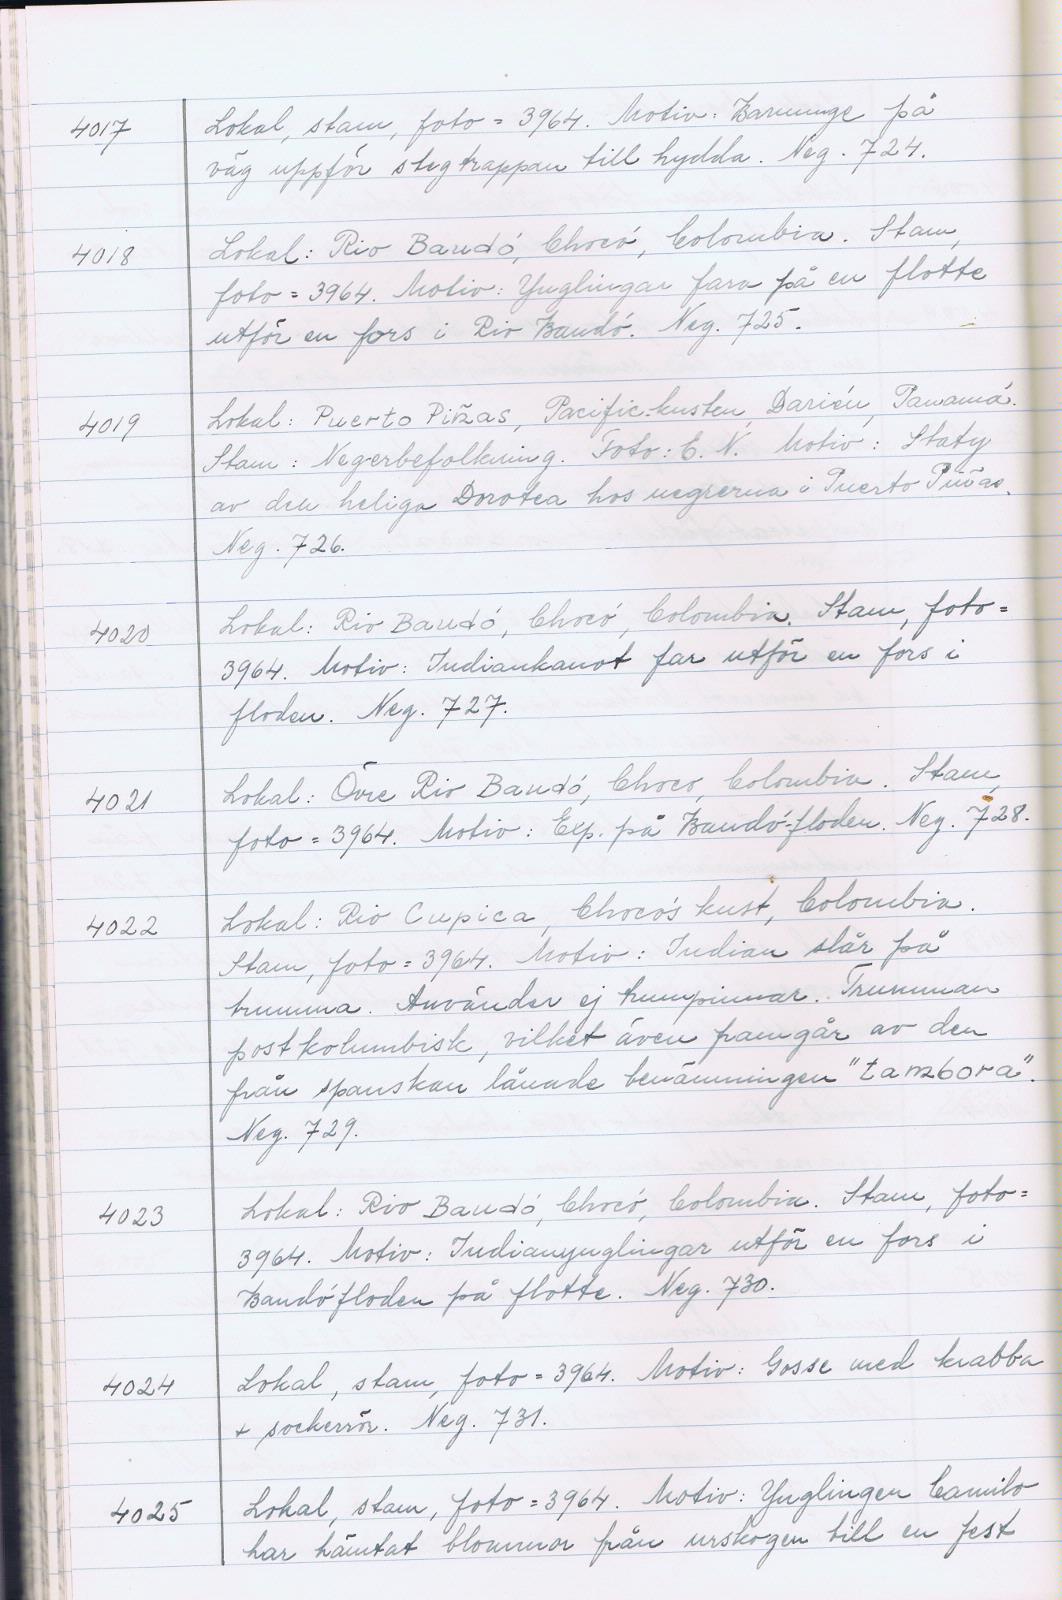 4017 Lokal, stam, foto = 3964. Motiv: Barnunge på
väg uppför stegtrappan till hydda. Neg. 724.
4018 Lokal: Rio Baudó, Chocó, Colombia. Stam,
foto = 3964. Motiv: Ynglingar fara på en flotte
utför en fors i Rio Baudó. Neg. 725.
4019 Lokal: Puerto Piñas, Pacific-kusten, Darién, Panamá.
Stam: Negerbefolkning. Foto: E. N. Motiv: Staty
av den heliga Dorotea hos negrerna i Puerto Piñas.
Neg. 726.
4020 Lokal: Rio Baudó, Chocó, Colombia. Stam, foto =
3964. Motiv: Indiankanot far utför en fors i
floden. Neg. 727.
4021 Lokal: Övre Rio Baudó, Choco, Colombia. Stam,
foto = 3964. Motiv: Exp. på Baudó-floden. Neg. 728.
4022 Lokal: Rio Cupica, Chocós kust, Colombia.
Stam, foto = 3964. Motiv: Indian slår på
trumma. Använder ej trumpinnar. Trumman
postkolumbisk, vilket även framgår av den
från spanskan lånade benämningen "tambora".
Neg. 729.
4023 Lokal: Rio Baudó, Chocó, Colombia. Stam, foto =
3964. Motiv: Indianynglingar utför en fors i
Baudófloden på flotte. Neg. 730.
4024 Lokal, stam, foto = 3964. Motiv: Gosse med krabba
+ sockerrör. Neg. 731.
4025 Lokal, stam, foto = 3964. Motiv: Ynglingen Camilo
har hämtat blommor från urskogen till en fest